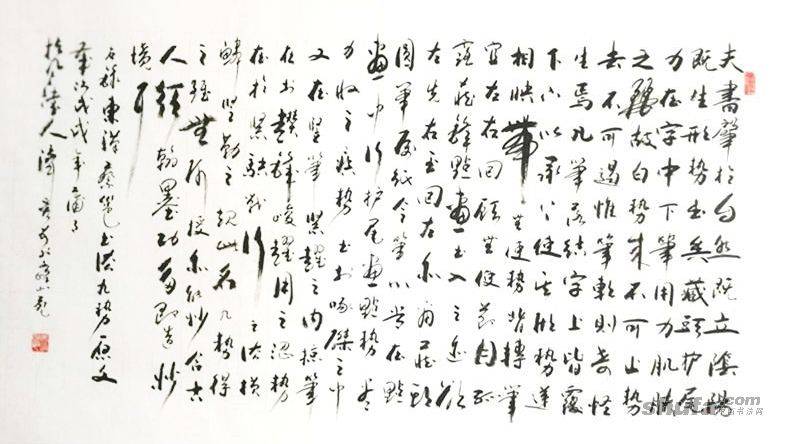 夫書肇於自然既立陰陽
既生形勢出矣藏頭護尾
力在字中下筆用力肌膚
之麗故曰勢來不可止勢
去不可遏惟筆軟則奇怪
生焉凡筆落結字上皆覆
下下以承上使其形勢遞
相映帶無使勢背轉筆
宜左右回顧無使節目孤
露藏鋒點畫出入之迹欲
左先右至回左亦爾藏頭
圓筆屬紙令筆心常在點
畫中行护尾畫點勢盡
力收之疾勢出於啄磔之中
又在竪筆緊趯之内掠筆
在於趲鋒峻趯用之澀勢
在於緊駃戰行之法横
鱗竪勒之規此名九勢得
之雖無師授亦能妙合古
人須翰墨功多即造妙
境耳
東漢蔡邕書法九勢原文
歲次戊戌年
人